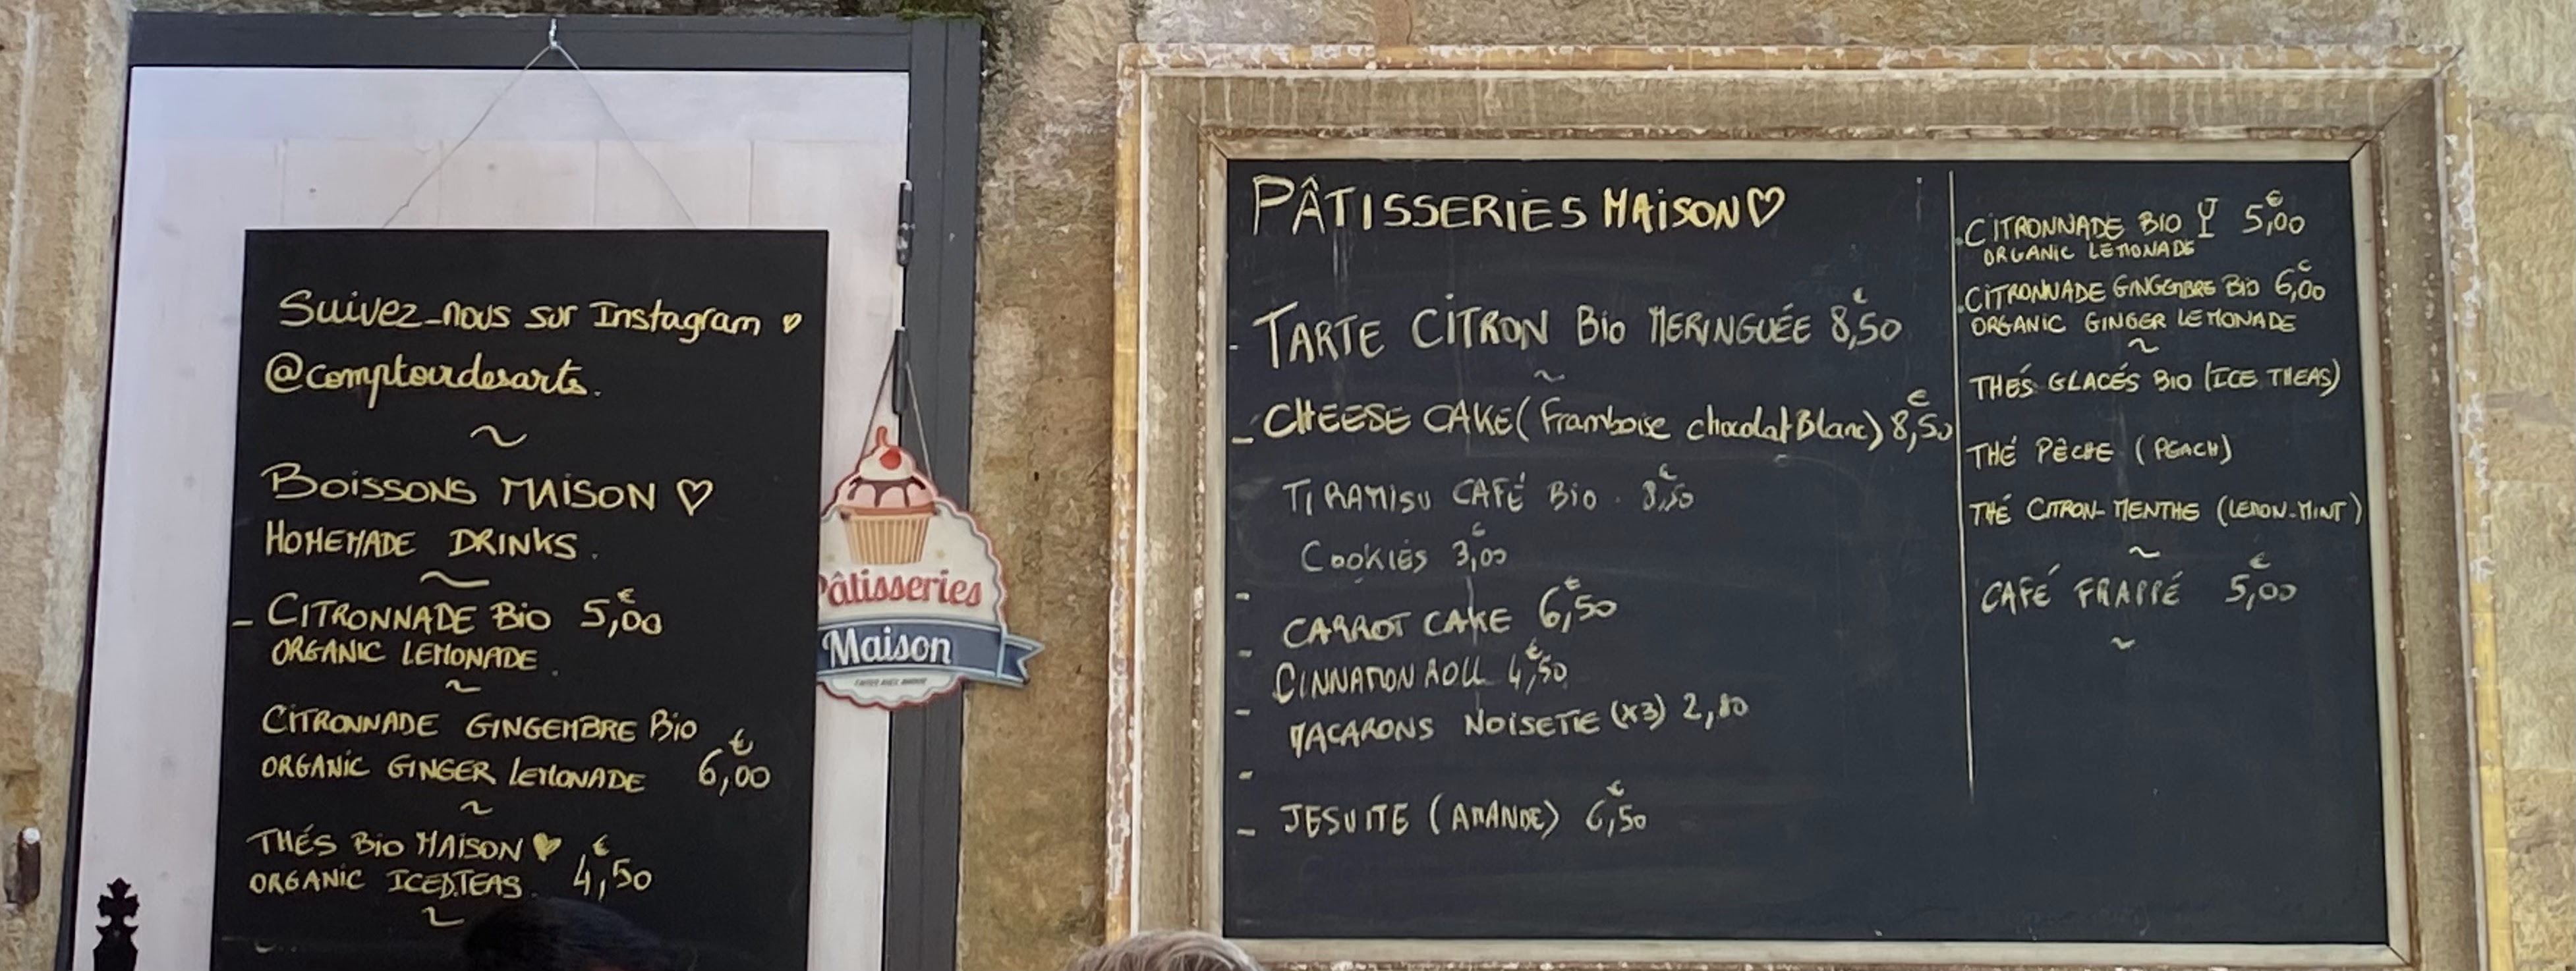 Suivez-nous sur Instagram
@comptoirdesarts.
~
BOISSONS MAISON ♡
HOMEMADE DRINKS.
~
- CITRONNADE BIO 5,00€
ORGANIC LEMONADE.
~
CITRONNADE GINGEMBRE BIO
ORGANIC GINGER LEMONADE 6,00€
~
THÉS BIO MAISON ♥
ORGANIC ICED.TEAS. 4,50€
~
Pâtisseries
Maison
PÂTISSERIES MAISON ♡
- TARTE CITRON BIO MERINGUÉE 8,50€
~
- CHEESE CAKE (Framboise chocolat Blanc) 8,50€
TIRAMISU CAFÉ BIO. 8,50€
COOKIES 3,00€
- CARROT CAKE 6,50€
- CINNAMON ROLL 4,50€
- MACARONS NOISETTE (X3) 2,80
-
- JESUITE (AMANDE) 6,50€
. CITRONNADE BIO 5,00€
ORGANIC LEMONADE
. CITRONNADE GINGEMBRE BIO 6,00€
ORGANIC GINGER LEMONADE
~
THÉS GLACÉS BIO (ICE THEAS)
THÉ PÊCHE (PEACH)
THÉ CITRON-MENTHE (LEMON-MINT)
~
CAFÉ FRAPPÉ 5,00€
~